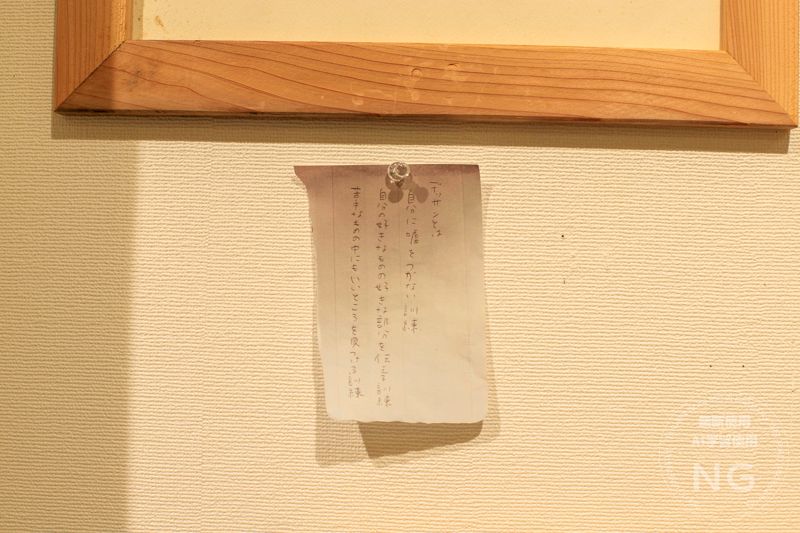 デッサンとは
自分に嘘をつかない訓練
自分の好きなものの好きな部分を伝える訓練
苦手なものの中にもいいところを見つける訓練
無断使用
AI学習使用
NG